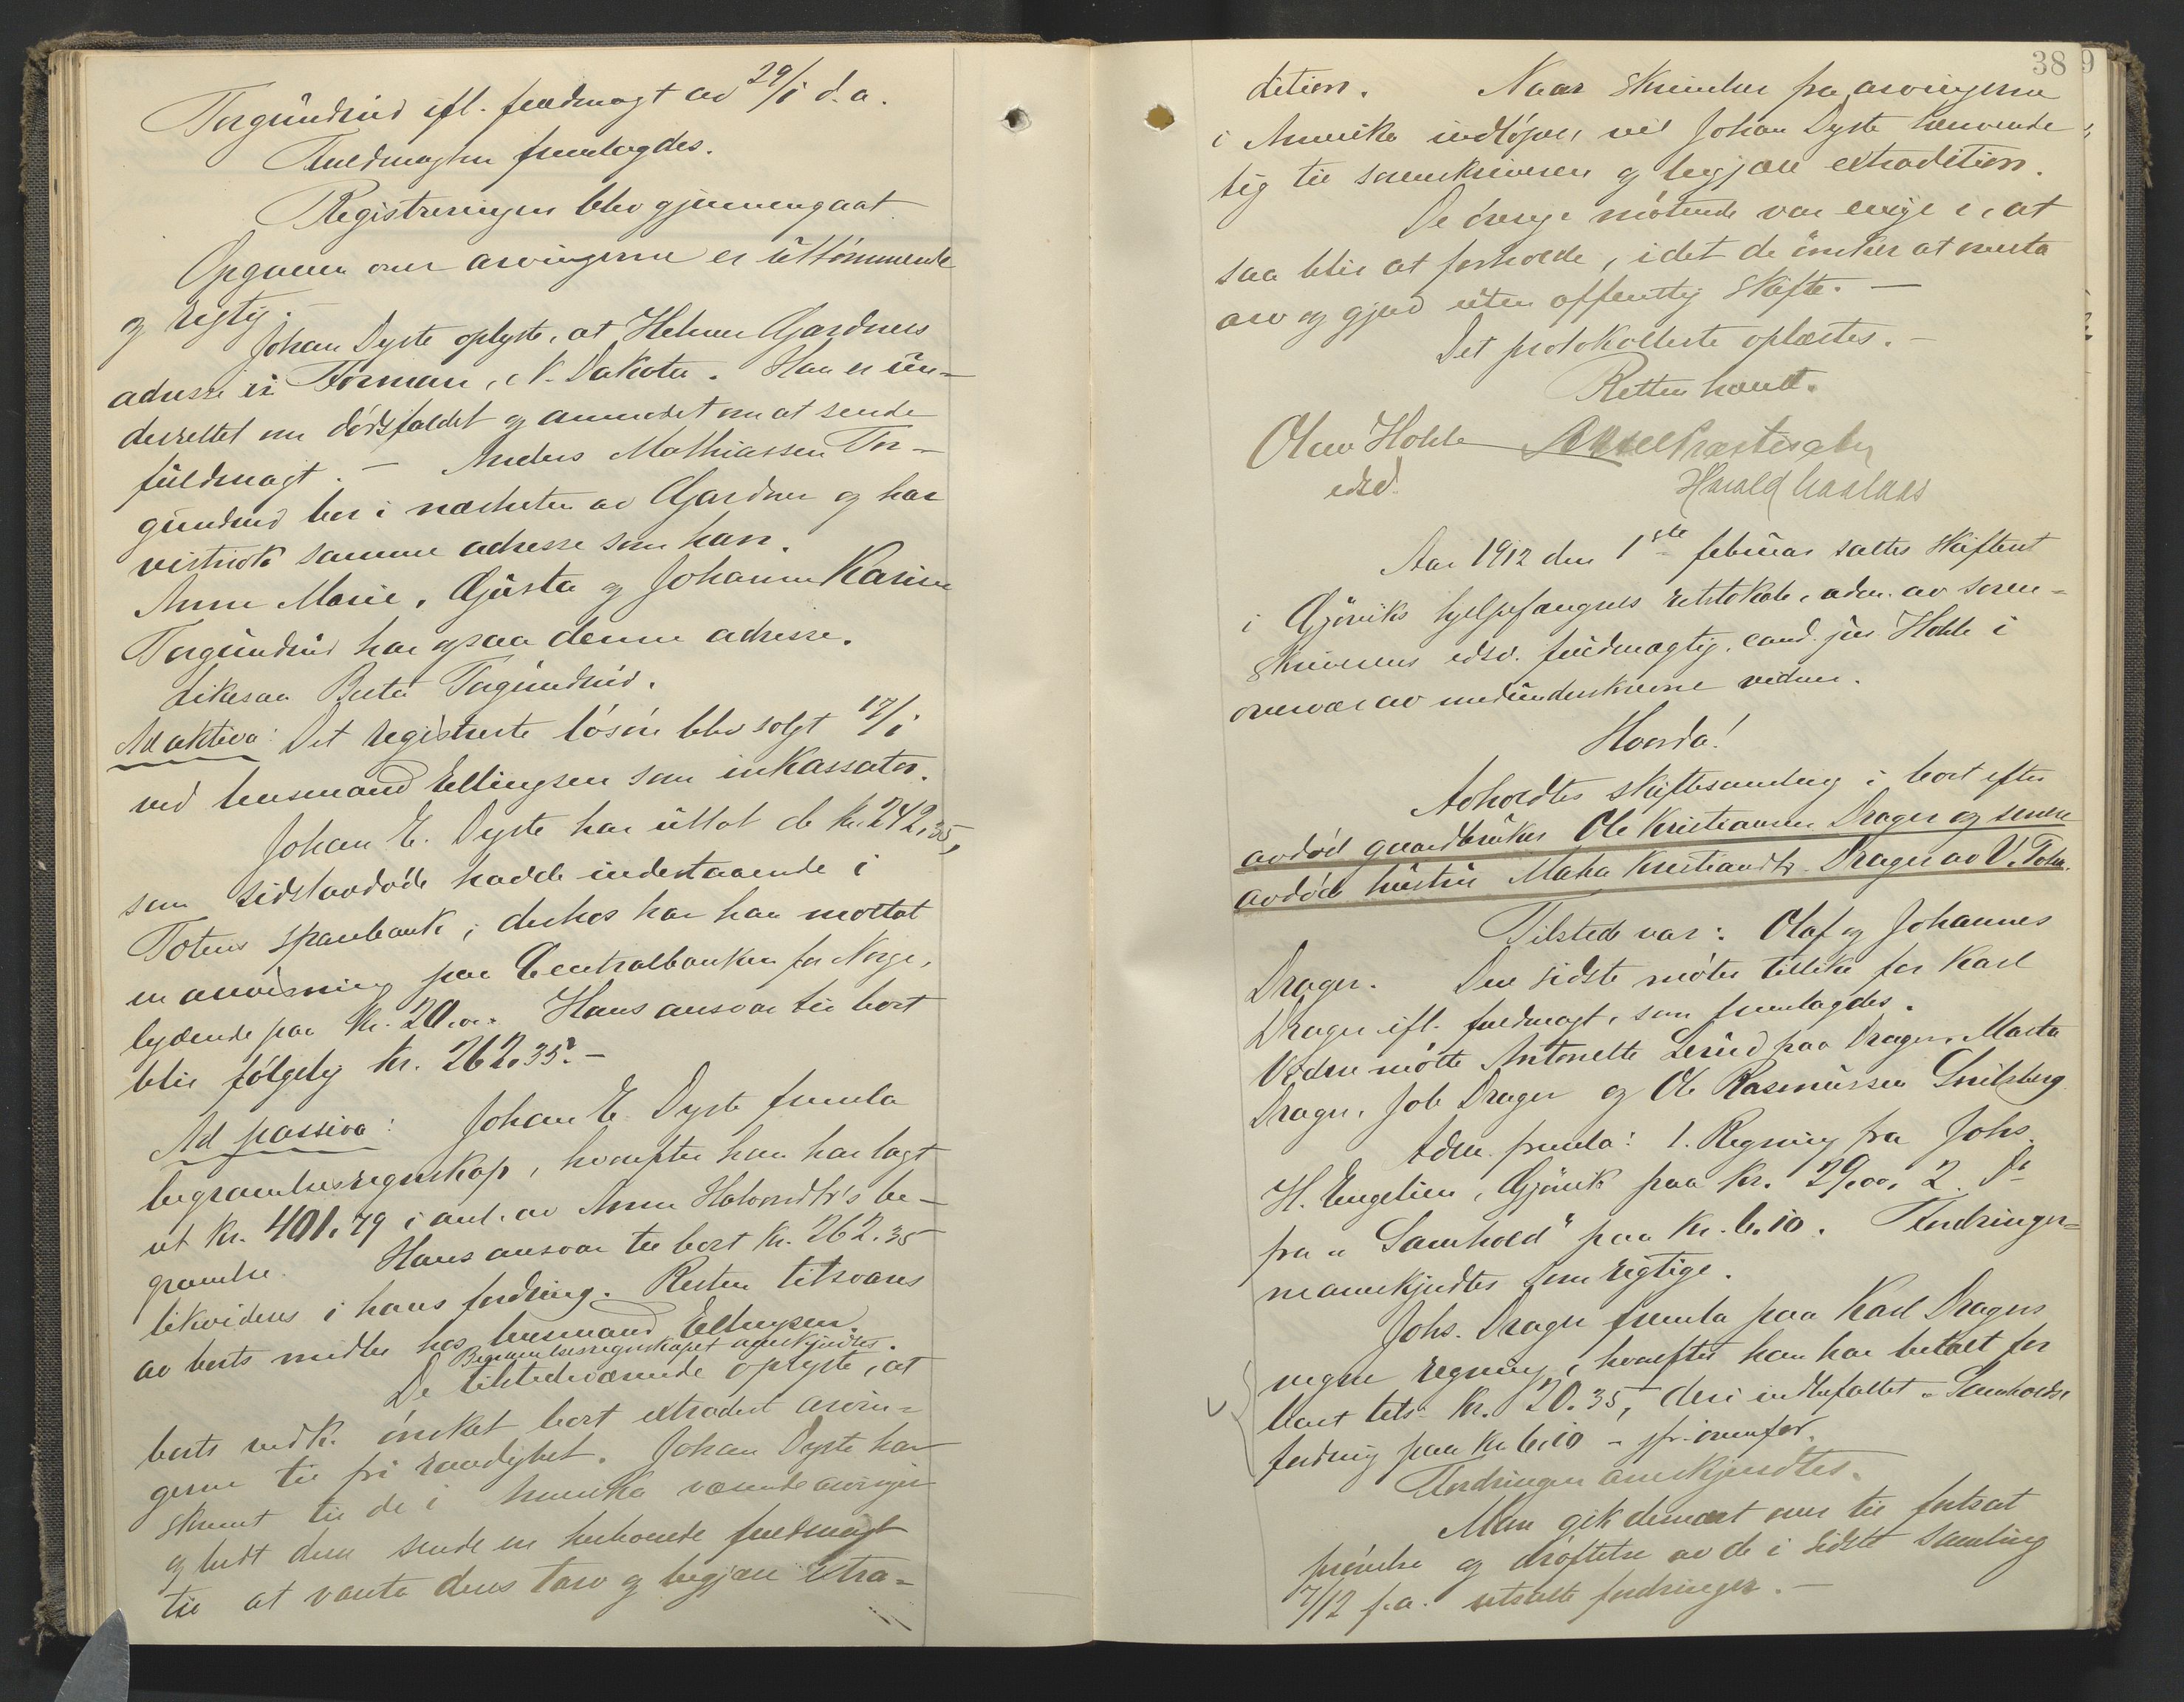 Torgundrud ifl. fuldmagt av 29/1 d.a.
Fuldmagten fremlagdes.
Registreringen blev gjennemgaat.
Opgaven over arvingerne er uttømmende
og rigtig. –
Johan Dyste oplyste, at Helmer Gardners
adresse er Forman, N. Dakota. Han er un-
derrettet om dødsfaldet og anmodet om at sende
fuldmagt. – Anders Mathiassen Tor-
gundrud bor i nærheten av Gardner og har
vistnok samme adresse som han.
Anne Marie, Gusta og Johanne Karine
Torgundrud har ogsaa denne adresse.
Likesaa Berte Torgundrud.
Ad aktiva: Det registrerte løsøre blev solgt 17/1
ved lensmand Ellingsen som inkassator.
Johan E. Dyste har uttat de kr. 242,35,
som sidstavdøde hadde indestaaende i
Totens sparebank; derhos har han mottat
en anvisning paa Centralbanken for Norge,
lydende paa kr. 20.00. Hans ansvar til boet
blir følgelig kr. 262.35. –
Ad passiva: Johan E. Dyste fremla
begravelsesregnskap, hvorefter han har lagt
ut kr. 401.79 i anl. av Anne Halvordtr's be-
gravelse. Hans ansvar til boet kr. 262.35
likvideres i hans fordring. Resten tilsvares
av boets midler hos lensmand Ellingsen.
Begravelsesregnskapet anerkjendtes.
De tilstedeværende oplyste, at
boets vedk. ønsket boet extradert arvin-
gerne til fri raadighet. Johan Dyste har
skrevet til de i Amerika værende arvinger
og bedt dem sende en behørende fuldmagt
til at vareta deres tarv og begjære extra-
38 9
dition. Naar skrivelse fra arvingerne
i Amerika indløper, vil Johan Dyste henvende
sig til sorenskriveren og begjære extradition.
De øvrige møtende var enige i, at
saa blir at forholde, idet de ønsker at overta
arv og gjæld uten offentlig skifte. –
Det protokollerte oplæstes. –
Retten hævet.
Olav Hohle
edsv.
Harald
Aar 1912 den 1ste februar sattes skifteret
i Gjøviks hjelpefængsels retslokale, adm. av soren-
skriverens edsv. fuldmægtig, cand. jur. Hohle i
overvær av medunderskrevne vidner.
Hvorda!
Avholdtes skiftesamling i boet efter
avdød gaardbruker Ole Kristiansen Drager og senere
avdøde hustru Maka Kristiandtr. Drager av V. Toten.
Tilstede var: Olaf og Johannes
Drager. Den sidste møter tillike for Karl
Drager ifl. fuldmagt, som fremlagdes.
Videre møtte Antonette Lerud paa Drager, Marta
Drager, Job Drager og Ole Rasmussen Smilsberg.
Adm. fremla: 1. Regning fra Johs.
H. Engelien, Gjøvik paa kr. 29.00. 2. Do
fra „Samhold" paa kr. 6.10. Fordringer-
ne anerkjendtes som rigtige.
Johs. Drager fremla paa Karl Dragers
vegne regning, hvorefter han har betalt for
boet tils. kr. 20.35, deri indbefattet „Samholds"
fordring paa kr 6.10 – jfr. ovenfor.
Fordringen anerkjendtes.
Man gik dernæst over til fortsat
prøvelse og drøftelse av de i sidste samling
7/12 f.a. utsatte fordringer. –